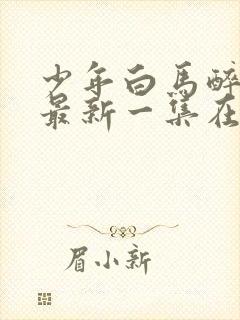 少年白马醉
最新一集在
眉小新